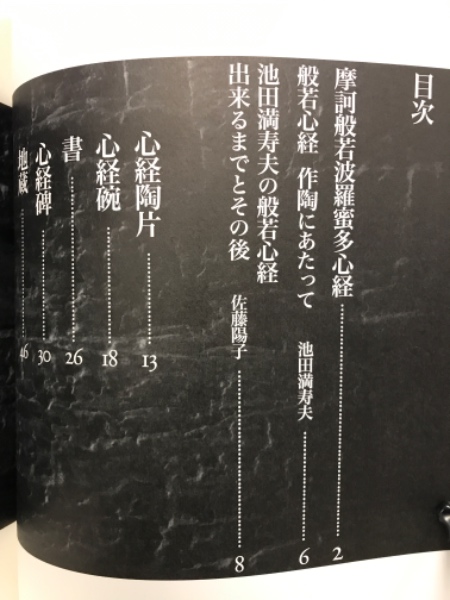 目次
摩訶般若波羅蜜多心経 2
般若心経 作陶にあたって 池田満寿夫 6
池田満寿夫の般若心経
出来るまでとその後 佐藤陽子 8
心経陶片 13
心経碗 18
書 26
心経碑 30
地蔵 46